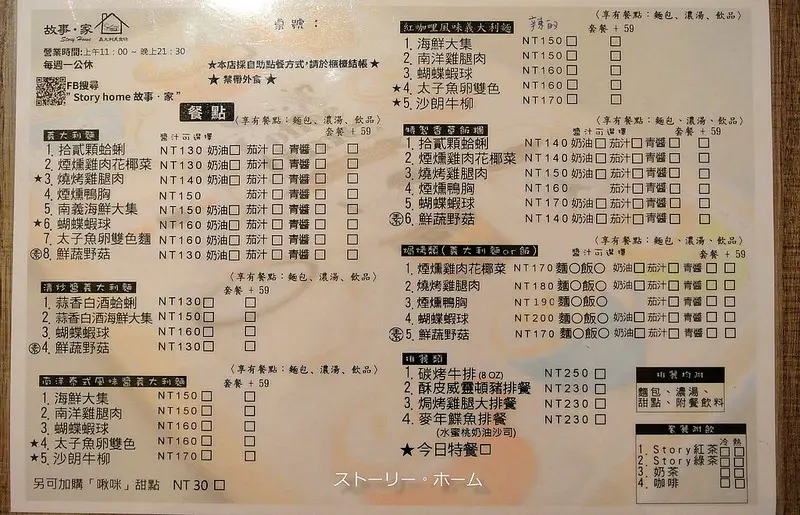 故事・家
Story Home 義大利美食坊
桌號：
營業時間:上午11：00 ~ 晚上21：30
每週一公休
★本店採自助點餐方式,請於櫃檯結帳★
★ 禁帶外食 ★
FB搜尋
"Story home 故事・家"
餐點
(享有餐點：麵包、濃湯、飲品)
義大利麵 醬汁可選擇 套餐 + 59
1. 拾貳顆蛤蜊 NT130 奶油□ 茄汁□ 青醬□ □
2. 煙燻雞肉花椰菜 NT130 奶油□ 茄汁□ 青醬□ □
★3. 燒烤雞腿肉 NT140 奶油□ 茄汁□ 青醬□ □
4. 煙燻鴨胸 NT150 茄汁□ 青醬□ □
5. 南義海鮮大集 NT150 奶油□ 茄汁□ 青醬□ □
★6. 蝴蝶蝦球 NT160 奶油□ 茄汁□ 青醬□ □
7. 太子魚卵雙色麵 NT160 奶油□ 茄汁□ 青醬□ □
素8. 鮮蔬野菇 NT130 奶油□ 茄汁□ 青醬□ □
(享有餐點：麵包、濃湯、飲品)
清炒醬義大利麵 套餐 + 59
1. 蒜香白酒蛤蜊 NT130□ □
2. 蒜香白酒海鮮大集 NT150□ □
3. 蝴蝶蝦球 NT150□ □
素4. 鮮蔬野菇 NT130□ □
(享有餐點：麵包、濃湯、飲品)
南洋泰式風味醬義大利麵 套餐 + 59
1. 海鮮大集 NT150□ □
2. 南洋雞腿肉 NT150□ □
3. 蝴蝶蝦球 NT160□ □
★4. 太子魚卵雙色 NT160□ □
★5. 沙朗牛柳 NT170□ □
另可加購「啾咪」甜點 NT 30 □
(享有餐點：麵包、濃湯、飲品)
紅咖哩風味義大利麵 辣的 套餐 + 59
1. 海鮮大集 NT150□ □
2. 南洋雞腿肉 NT150□ □
3. 蝴蝶蝦球 NT160□ □
★4. 太子魚卵雙色 NT160□ □
★5. 沙朗牛柳 NT170□ □
(享有餐點：麵包、濃湯、飲品)
特製香草飯糰 醬汁可選擇 套餐 + 59
1. 拾貳顆蛤蜊 NT140 奶油□ 茄汁□ 青醬□ □
2. 煙燻雞肉花椰菜 NT140 奶油□ 茄汁□ 青醬□ □
3. 燒烤雞腿肉 NT150 奶油□ 茄汁□ 青醬□ □
4. 煙燻鴨胸 NT160 茄汁□ 青醬□ □
5. 蝴蝶蝦球 NT170 奶油□ 茄汁□ 青醬□ □
素6. 鮮蔬野菇 NT140 奶油□ 茄汁□ 青醬□ □
(享有餐點：麵包、濃湯、飲品)
焗烤類(義大利麵or飯) 醬汁可選擇 套餐 + 59
1. 煙燻雞肉花椰菜 NT170 麵○飯○ 奶油□茄汁□ 青醬□ □
2. 燒烤雞腿肉 NT180 麵○飯○ 奶油□茄汁□ 青醬□ □
3. 煙燻鴨胸 NT190 麵○飯○ 茄汁□ 青醬□ □
4. 蝴蝶蝦球 NT200 麵○飯○ 奶油□茄汁□ 青醬□ □
素5. 鮮蔬野菇 NT170 麵○飯○ 奶油□茄汁□ 青醬□ □
排餐類
1. 碳烤牛排(8 OZ) NT250 □
2. 酥皮威靈頓豬排餐 NT230 □
3. 焗烤雞腿大排餐 NT230 □
4. 麥年鰈魚排餐 NT230 □
(水蜜桃奶油沙司)
★今日特餐□
排餐均附
麵包、濃湯、
甜點、附餐飲料
套餐附飲
冷 熱
1. Story紅茶□□
2. Story綠茶□□
3. 奶茶 □□
4. 咖啡 □□
ストーリー。ホーム